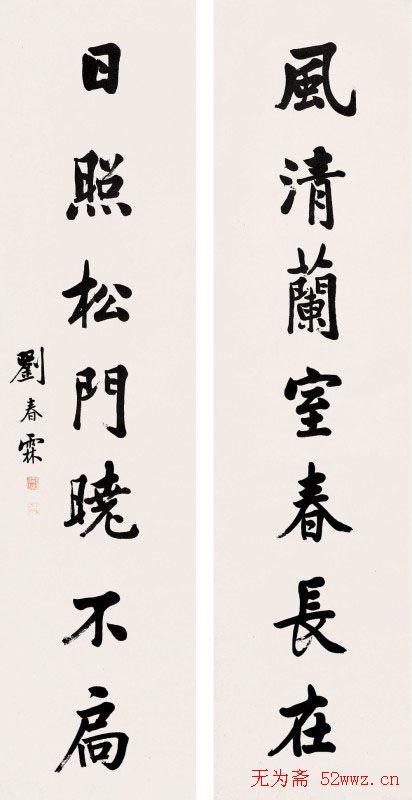 風清蘭室春長在
日照松門曉不扃
劉春霖
无为斋 52wwz.cn